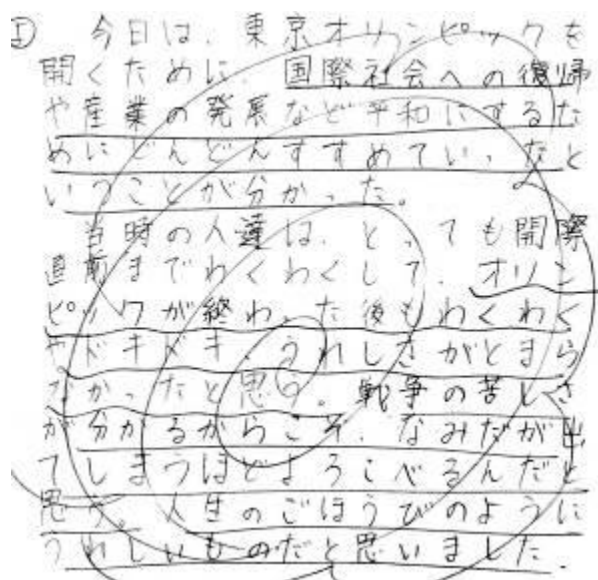 ① 今日は、東京オリンピックを
開くために、国際社会への復帰
や産業の発展など平和にするた
めにどんどんすすめていったと
いうことが分かった。
当時の人達は、とっても開際
直前までわくわくして、オリン
ピックが終わった後もわくわく
やドキドキ、うれしさがとまら
なかったと思う。戦争の苦しさ
が分かるからこそ、なみだが出
てしまうほどよろこべるんだと
思う。人生のごほうびのように
うれしいものだと思いました。